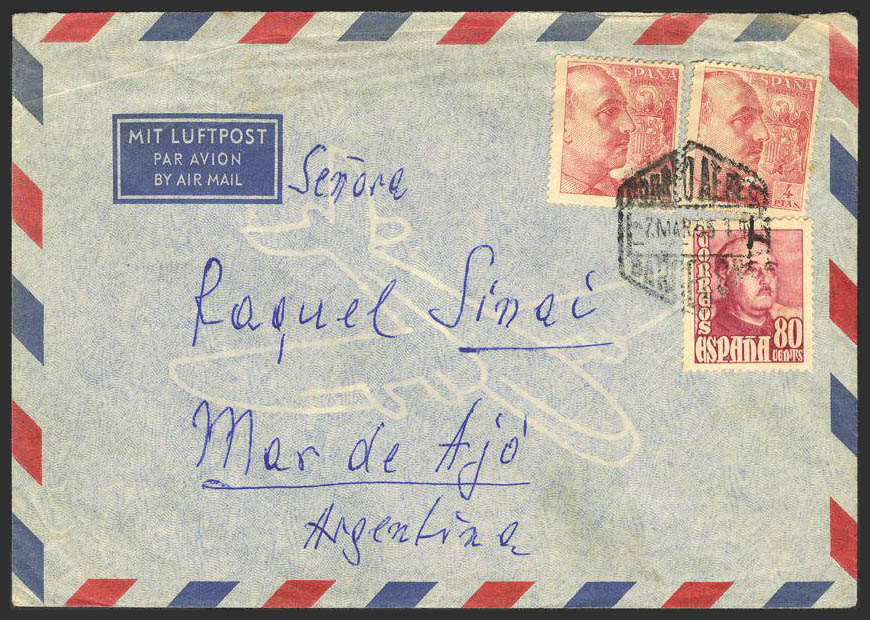 MIT LUFTPOST
PAR AVION
BY AIR MAIL
Señora
Raquel Sinai
Mar de Ajó
Argentina
ESPAÑA
CORREOS
ESPAÑA
CORREOS
4
PTAS
CORREO AEREO
7.MAR
CORREOS
ESPAÑA
80
CENTS